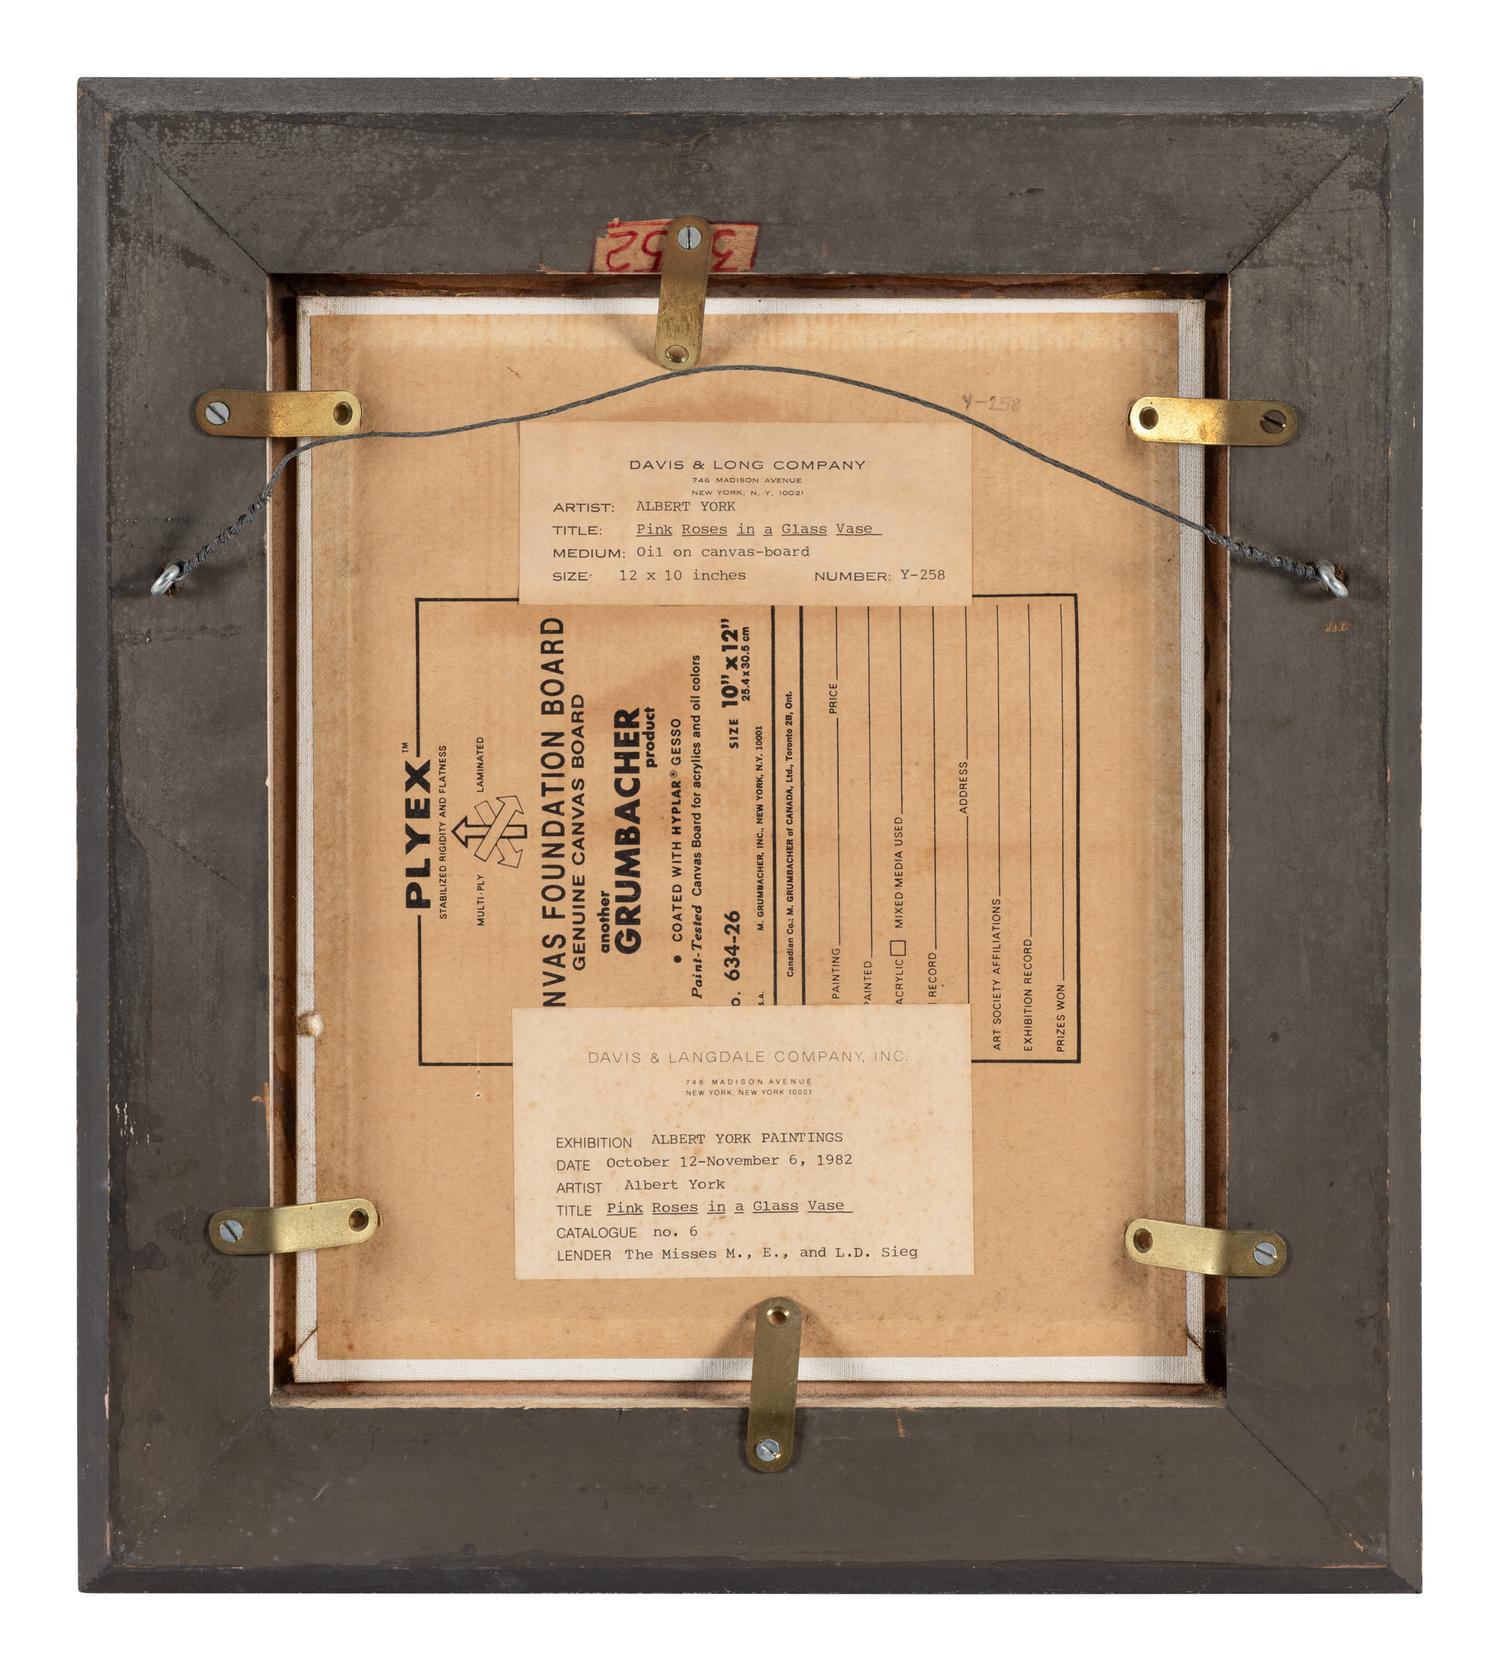 Y-258
DAVIS & LONG COMPANY
746 MADISON AVENUE
NEW YORK, N. Y. 10021
ARTIST: ALBERT YORK
TITLE: Pink Roses in a Glass Vase
MEDIUM: Oil on canvas-board
SIZE: 12 x 10 inches NUMBER: Y-258
PLYEX™
STABILIZED RIGIDITY AND FLATNESS
MULTI-PLY LAMINATED
NVAS FOUNDATION BOARD
GENUINE CANVAS BOARD
another
GRUMBACHER
product
• COATED WITH HYPLAR® GESSO
Paint-Tested Canvas Board for acrylics and oil colors
O. 634-26 SIZE 10" x 12"
25.4 x 30.5 cm
S.A. M. GRUMBACHER, INC., NEW YORK, N.Y. 10001
Canadian Co.: M. GRUMBACHER of CANADA, Ltd., Toronto 2B, Ont.
PAINTING PRICE
PAINTED
ACRYLIC MIXED MEDIA USED
RECORD
ADDRESS
ART SOCIETY AFFILIATIONS
EXHIBITION RECORD
PRIZES WON
DAVIS & LANGDALE COMPANY, INC.
746 MADISON AVENUE
NEW YORK, NEW YORK 10021
EXHIBITION ALBERT YORK PAINTINGS
DATE October 12-November 6, 1982
ARTIST Albert York
TITLE Pink Roses in a Glass Vase
CATALOGUE no. 6
LENDER The Misses M., E., and L.D. Sieg